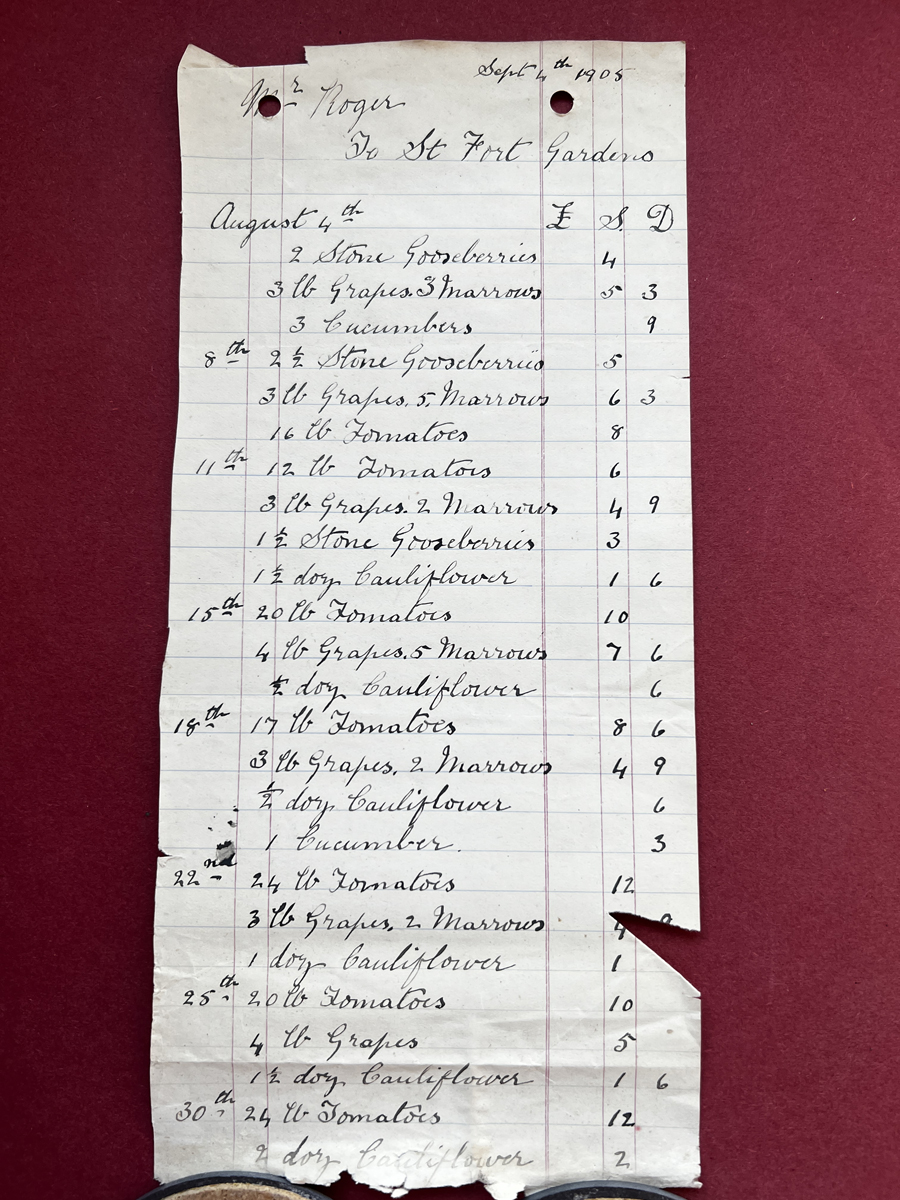 Sept 4th 1905
Mr Roger
To St Fort Gardens
August 4th £ S. D
2 Stone Gooseberries 4
3 lb Grapes. 3 Marrows 5 3
3 Cucumbers 9
8th 2 ½ Stone Gooseberries 5
3 lb Grapes. 5. Marrows 6 3
16 lb Tomatoes 8
11th 12 lb Tomatoes 6
3 lb Grapes. 2 Marrows 4 9
1 ½ Stone Gooseberries 3
1 ½ doz Cauliflower 1 6
15th 20 lb Tomatoes 10
4 lb Grapes. 5 Marrows 7 6
½ doz Cauliflower 6
18th 17 lb Tomatoes 8 6
3 lb Grapes. 2 Marrows 4 9
½ doz Cauliflower 6
1 Cucumber. 3
22nd 24 lb Tomatoes 12
3 lb Grapes. 2 Marrows 4 9
1 doz Cauliflower 1
25th 20 lb Tomatoes 10
4 lb Grapes 5
1 ½ doz Cauliflower 1 6
30th 24 lb Tomatoes 12
2 doz Cauliflower 2